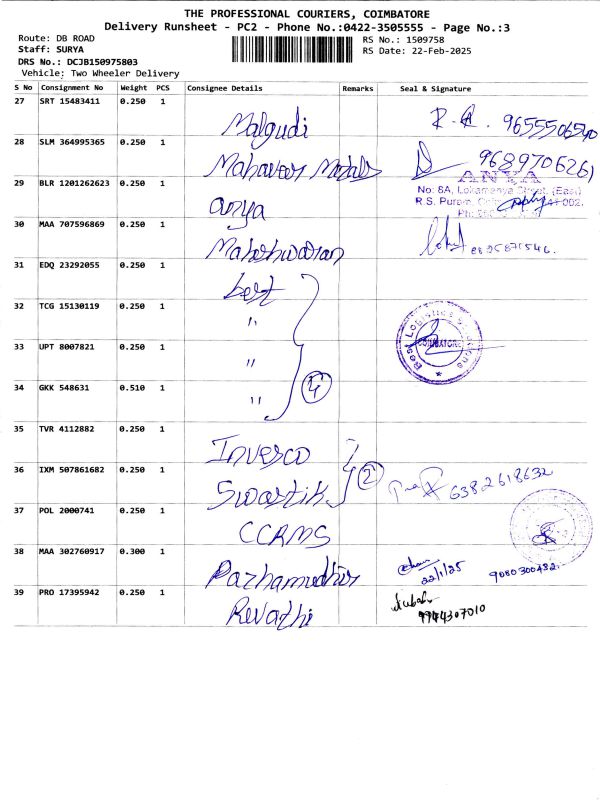 THE PROFESSIONAL COURIERS, COIMBATORE
Delivery Runsheet - PC2 - Phone No.:0422-3505555 - Page No.:3
Route: DB ROAD
RS No.: 1509758
Staff: SURYA
RS Date: 22-Feb-2025
DRS No.: DCJB150975803
Vehicle: Two Wheeler Delivery
S No Consignment No Weight PCS Consignee Details Remarks Seal & Signature
27 SRT 15483411 0.250 1 Malgudi R. 9655506540
28 SLM 364995365 0.250 1 Mahaveer Metals 9689706261
29 BLR 1201262623 0.250 1 anya
ANYA
No: 8A, Lokamanya Street, (East)
R.S. Puram,
30 MAA 707596869 0.250 1 Maheshwaran 8895871546.
31 EDQ 23292055 0.250 1 best
32 TCG 15130119 0.250 1 "
Best Logistics Solutions
COIMBATORE
33 UPT 8007821 0.250 1 "
34 GKK 548631 0.510 1 " 4
35 TVR 4112882 0.250 1 Invesco
36 IXM 507861682 0.250 1 Swastik 2 6382618632
37 POL 2000741 0.250 1 CCRMS
38 MAA 302760917 0.300 1 Pazhamudhir 22/1/25 9080300482.
39 PRO 17395942 0.250 1 Revathi 9944307010